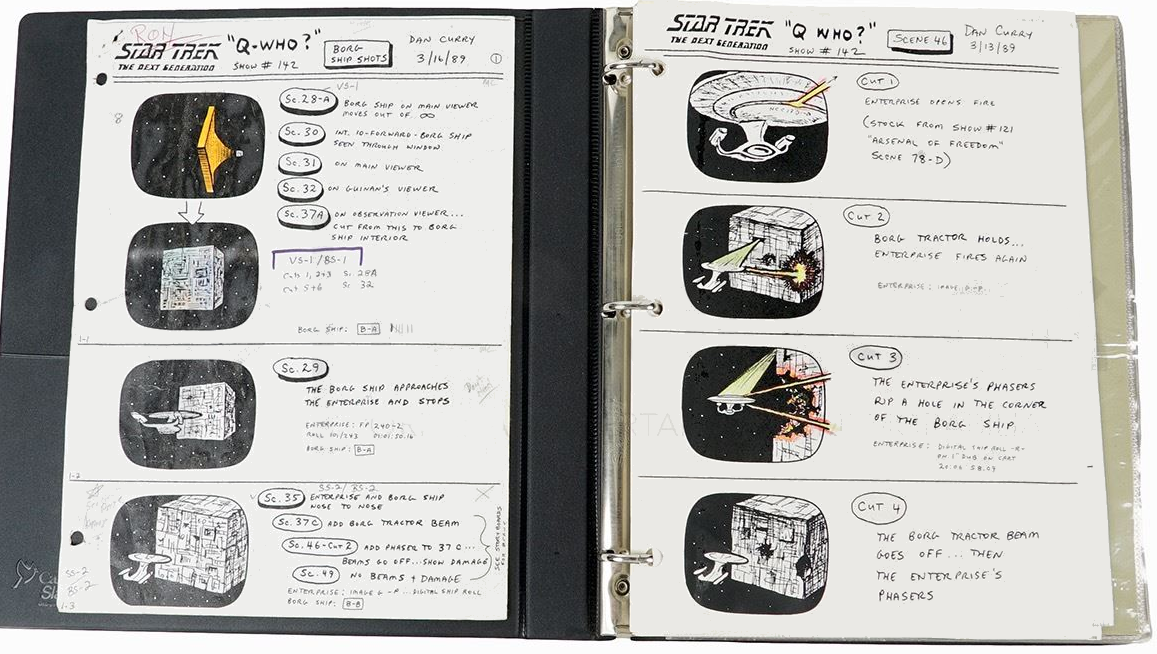 RON
STAR TREK
THE NEXT GENERATION
"Q-WHO?"
SHOW # 142
BORG
SHIP SHOTS
DAN CURRY
3/16/89
1
VS-1
Sc. 28-A
BORG SHIP ON MAIN VIEWER
MOVES OUT OF ∞
Sc. 30
INT. 10-FORWARD-BORG SHIP
SEEN THROUGH WINDOW
Sc. 31
ON MAIN VIEWER
Sc. 32
ON GUINAN'S VIEWER
Sc. 37A
ON OBSERVATION VIEWER...
CUT FROM THIS TO BORG
SHIP INTERIOR
VS-1 / BS-1
Cuts 1, 2+3 Sc. 28A
Cut 5+6 Sc 32
BORG SHIP: B-A
1-1
Sc. 29
THE BORG SHIP APPROACHES
THE ENTERPRISE AND STOPS
ENTERPRISE: FP 240-2
ROLL 101/243 01:01:50.16
BORG SHIP: B-A
1-2
SS-2 / BS-2
Sc. 35
ENTERPRISE AND BORG SHIP
NOSE TO NOSE
Sc. 37C
ADD BORG TRACTOR BEAM
Sc. 46-Cut 2
ADD PHASER TO 37C...
BEAMS GO OFF...SHOW DAMAGE
Sc. 49
NO BEAMS + DAMAGE
SEE STORYBOARDS
ENTERPRISE: IMAGE G-P...DIGITAL SHIP ROLL
BORG SHIP: B-B
SS-2
BS-2
1-3
STAR TREK
THE NEXT GENERATION
"Q-WHO?"
SHOW # 142
SCENE 46
DAN CURRY
3/13/89
CUT 1
ENTERPRISE OPENS FIRE
(STOCK FROM SHOW #121
"ARSENAL OF FREEDOM"
SCENE 78-D)
CUT 2
BORG TRACTOR HOLDS...
ENTERPRISE FIRES AGAIN
ENTERPRISE: IMAGE
CUT 3
THE ENTERPRISE'S PHASERS
RIP A HOLE IN THE CORNER
OF THE BORG SHIP
ENTERPRISE: DIGITAL SHIP ROLL -R-
PH 1" DUB ON CART
20:06 58.07
CUT 4
THE BORG TRACTOR BEAM
GOES OFF... THEN
THE ENTERPRISE'S
PHASERS